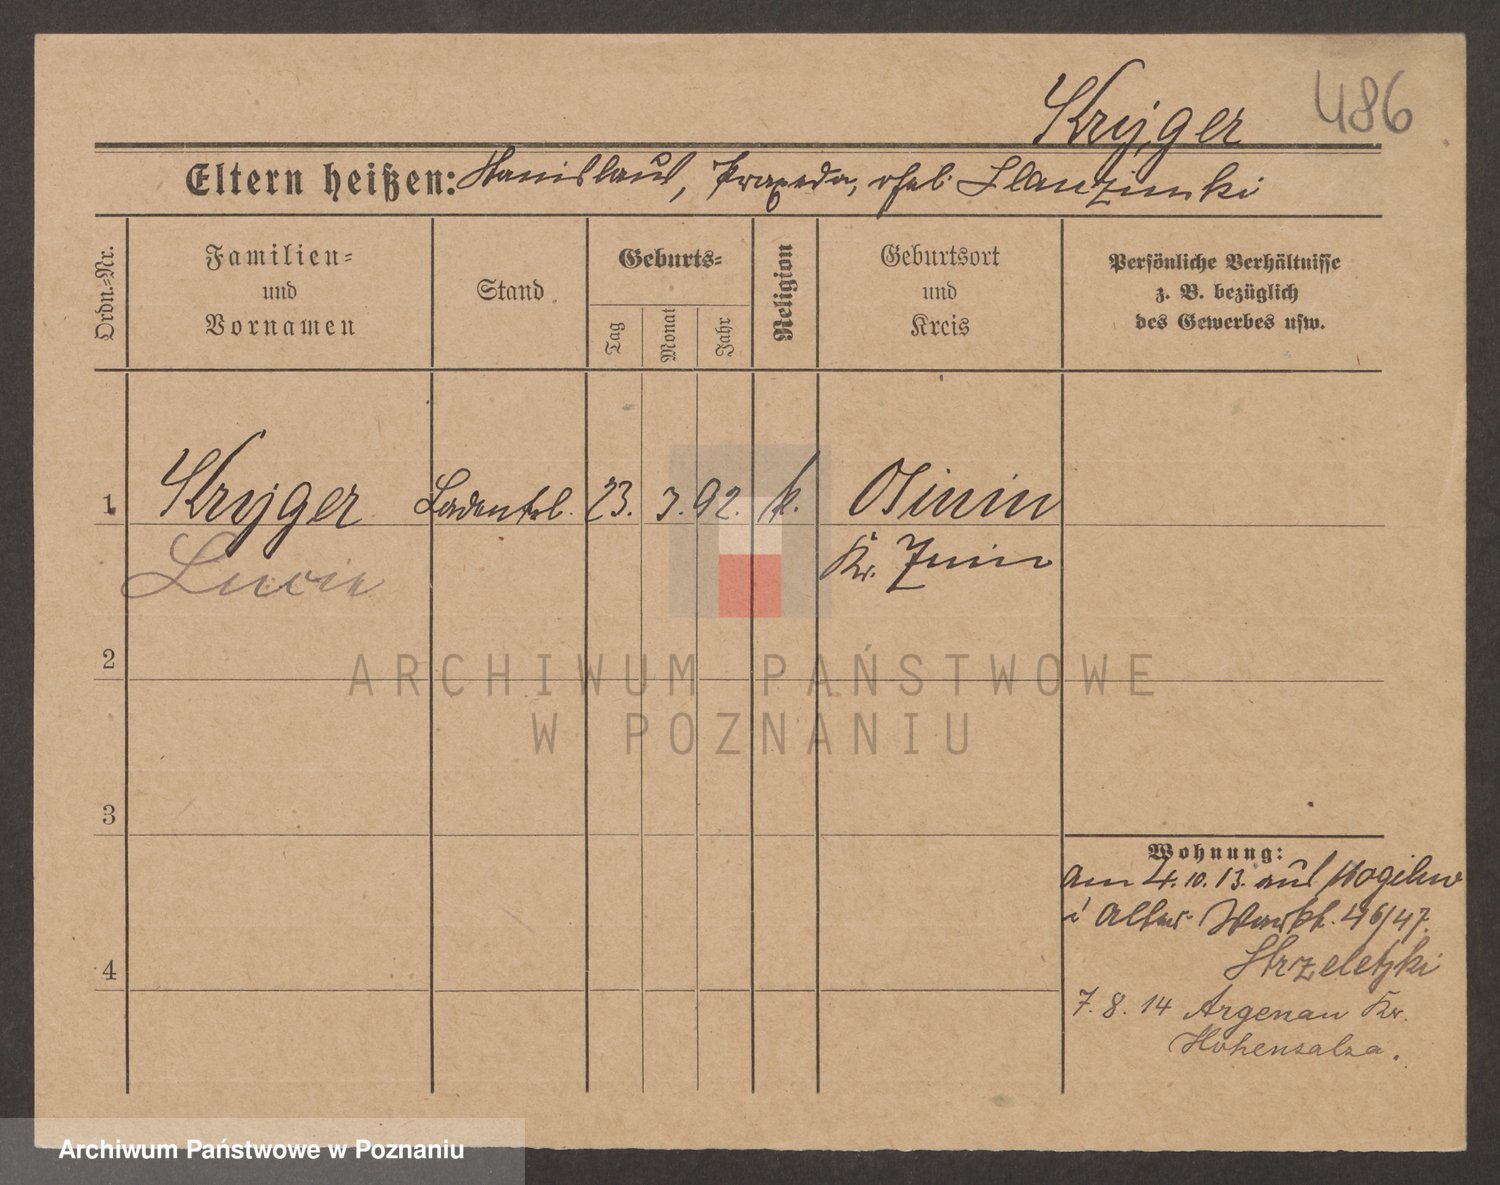 Kryger 486
Eltern heißen: Stanislaus, Praxeda,
Ordn.-Nr.
Familien-
und
Vornamen
Stand
Geburts-
Tag
Monat
Jahr
Religion
Geburtsort
und
Kreis
Persönliche Verhältnisse
z. B. bezüglich
des Gewerbes usw.
1 Kryger 23. 3. 92. k.
Kr. Znin
Lucie
2
3
4
Wohnung:
am 4. 10. 13. aus Mogilno
i Alter Markt. 46/47.
Strzeletzki
7. 8. 14 Argenau Kr.
Hohensalza.
ARCHIWUM PAŃSTWOWE
W POZNANIU
Archiwum Państwowe w Poznaniu